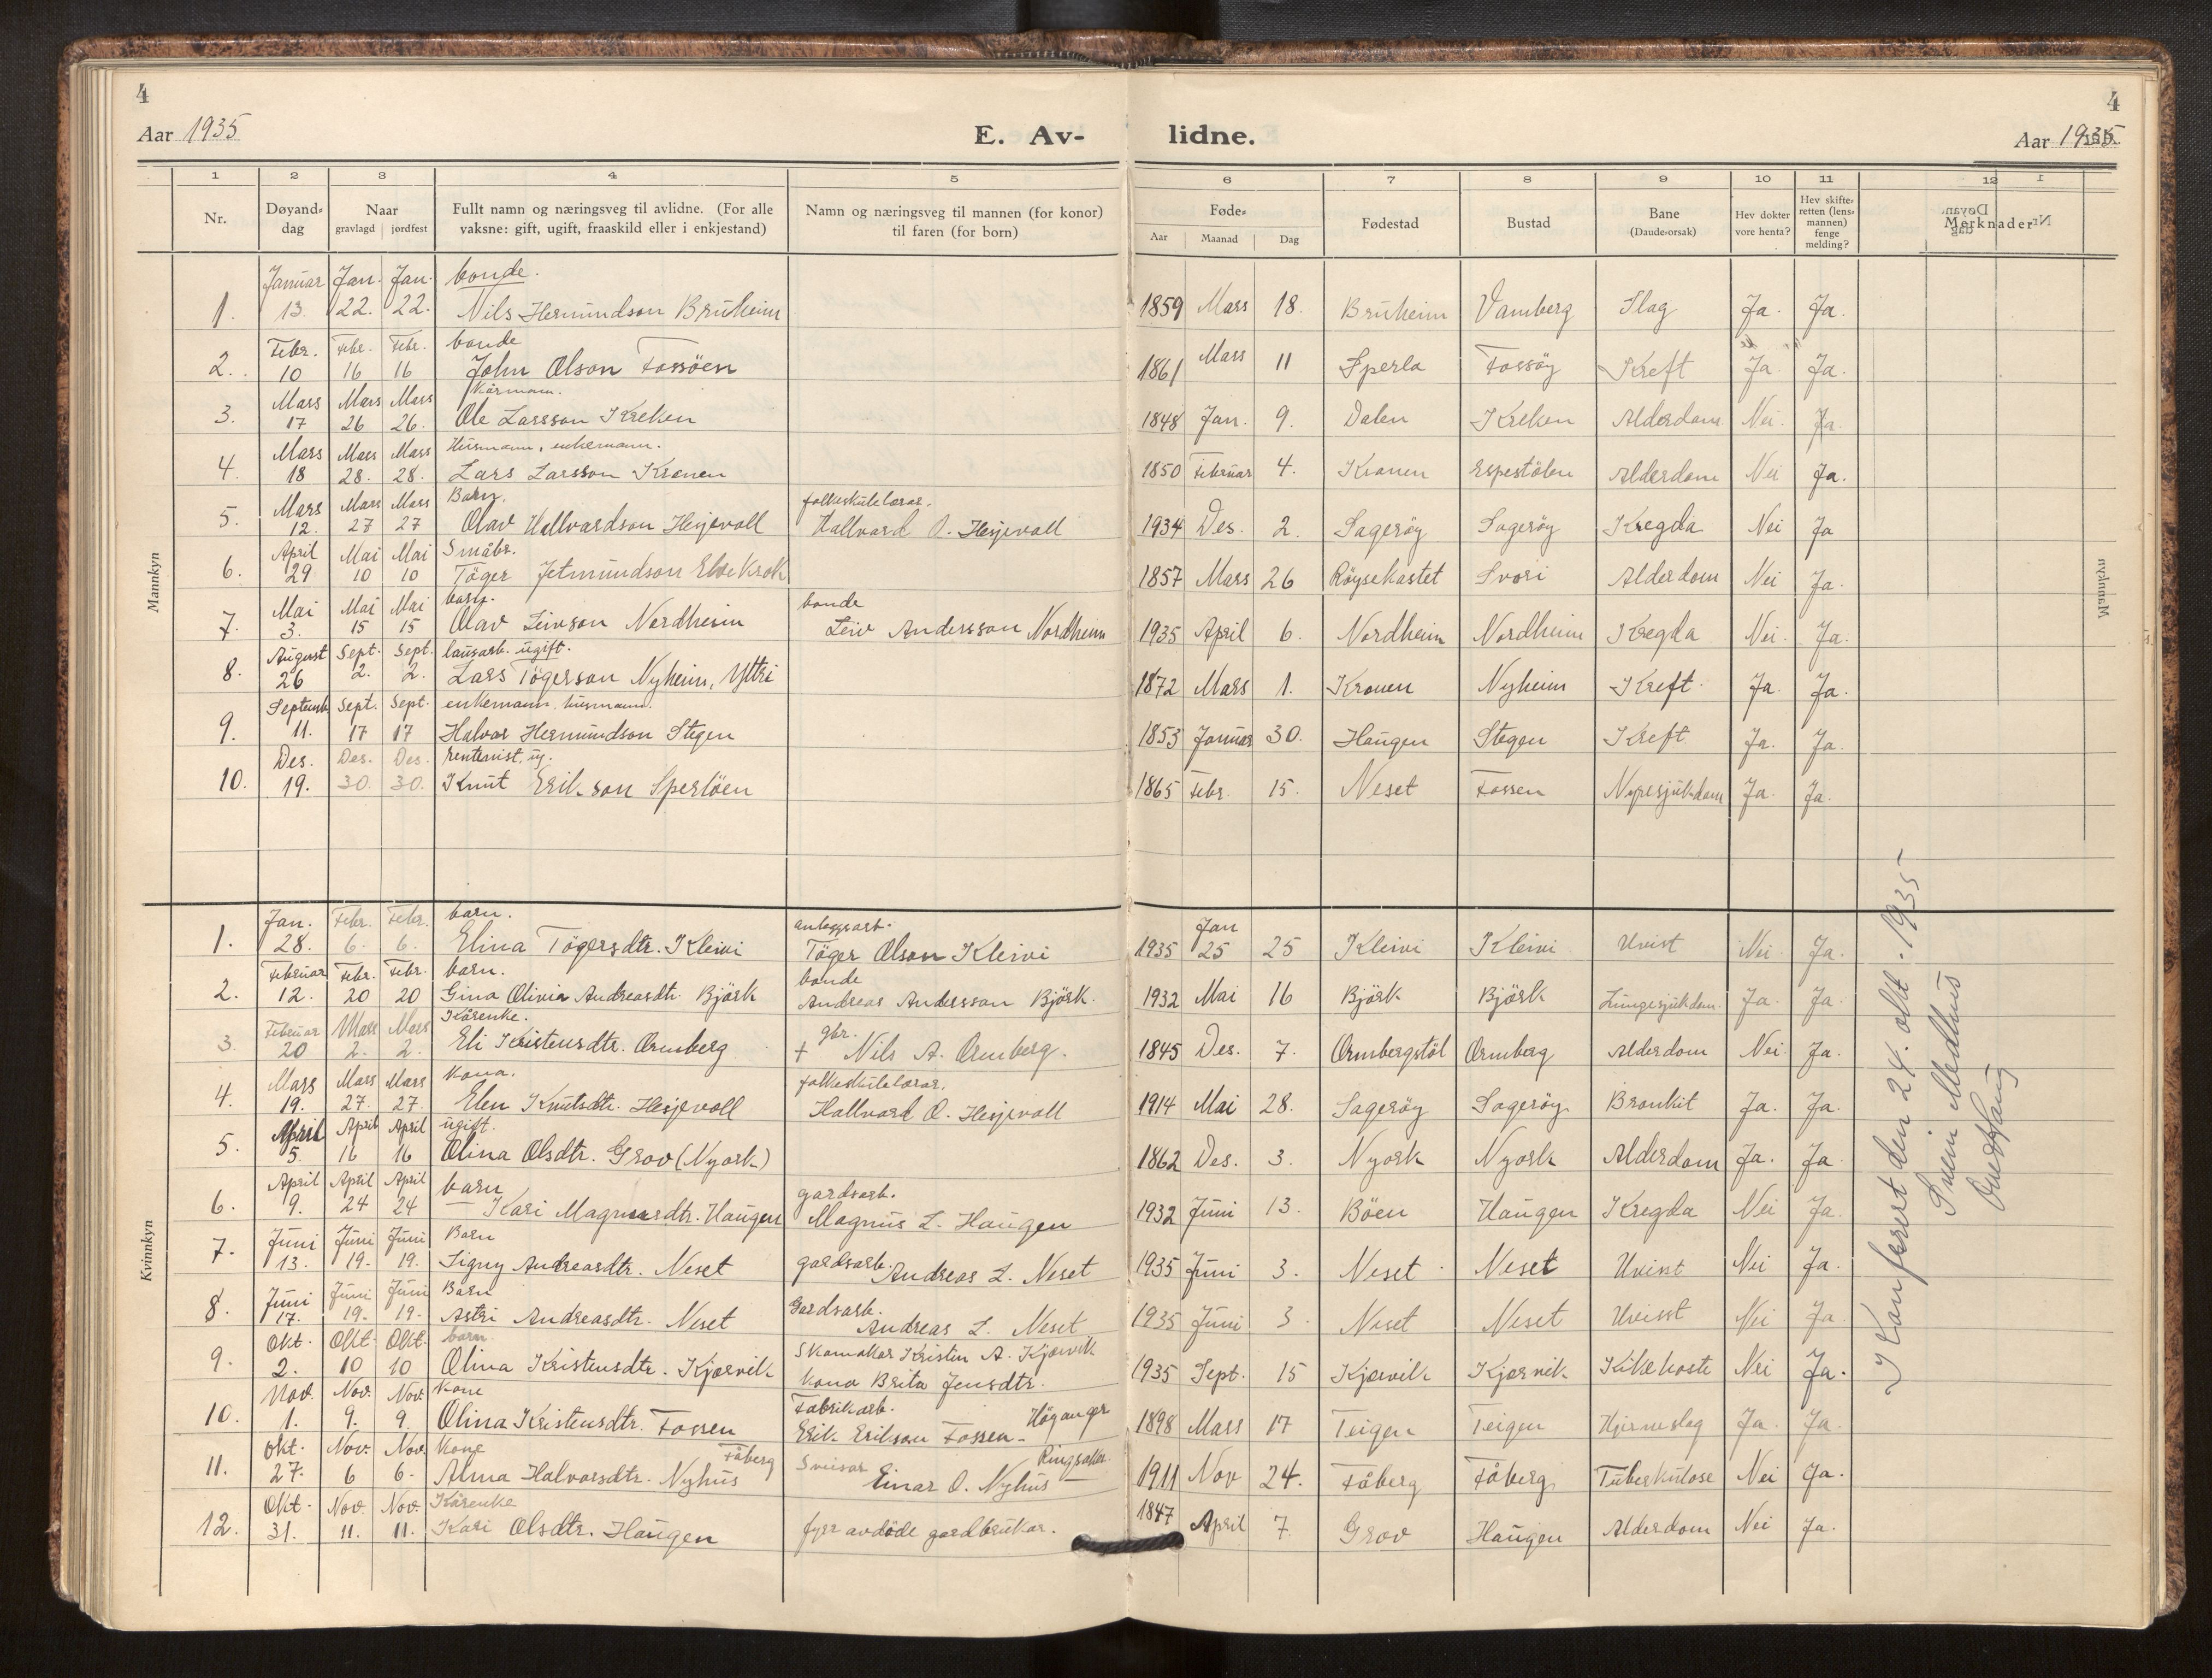 4
4
Aar 1935
E. Av-
lidne.
Aar 1935
1 2 3 4 5 6 7 8 9 10 11 12
Nr.
Døyand-
dag
Naar
gravlagd jordfest
Fullt namn og næringsveg til avlidne. (For alle
vaksne: gift, ugift, fraaskild eller i enkjestand)
Namn og næringsveg til mannen (for konor)
til faren (for born)
Føde-
Aar Maanad Dag
Fødestad
Bustad
Bane
(Daude-orsak)
Hev dokter
vore henta?
Hev skifte-
retten (lens-
mannen)
fenge
melding?
Merknader
Mannkyn
Januar Jan. Jan. bonde.
1. 13. 22. 22. Nils Hermundson Bruheim 1859 Mars 18. Bruheim Vamberg Slag Ja. Ja.
Febr. Febr. Febr. bonde
2. 10 16 16 John Olson Fossöen 1861 Mars 11 Sperla Fossöy Kreft Ja. Ja.
Mars Mars Mars Kårmann.
3. 17 26 26. Ole Larsson Kreken 1848 Jan. 9. Dalen Kreken Alderdom Nei. Ja.
Mars Mars Mars Husmann, enkemann.
4. 18 28. 28. Lars Larsson Kronen 1850 Februar 4. Kronen Espestölen Alderdom Nei Ja.
Mars Mars Mars Barn. folkeskulelærar.
5. 12. 27 27 Olav Hallvardson Hesjevoll Hallvard O. Hesjevoll 1934 Des. 2. Sageröy Sageröy Kregda Nei Ja
April Mai Mai Småbr.
6. 29 10 10 Töger Jetmundson Elvekrok 1857 Mars 26 Röysekastet Svori Alderdom Nei Ja.
Mai Mai Mai barn. bonde
7. 3. 15 15 Olav Leivson Nordheim Leiv Andersson Nordheim 1935 April 6. Nordheim Nordheim Kregda Nei. Ja.
August Sept. Sept. lausarb. ugift.
8. 26 2. 2. Lars Tögerson Nyheim, Yttri 1872 Mars 1. Kronen Nyheim Kreft. Ja. Ja.
Septemb. Sept. Sept. enkemann, husmann.
9. 11. 17 17 Halvor Hermundson Stegen 1853 Januar 30. Haugen Stegen Kreft Ja. Ja.
Des. Des. Des. rentenist, ug.
10. 19. 30. 30. Knut Erikson Sperlöen 1865 Febr. 15. Neset Fossen Nyresjukdom Ja. Ja.
Kvinnkyn
Jan. Febr. Febr. barn. anleggsarb. Jan
1. 28. 6. 6. Elina Tögersdtr. Kleivi Töger Olson Kleivi 1935 25 25 Kleivi Kleivi Uvist Nei. Ja.
Februar Febr. Febr. barn. bonde
2. 12. 20 20 Gina Olivia Andreasdtr. Björk Andreas Andersson Björk. 1932 Mai 16 Björk Björk Lungesjukdom. Ja. Ja.
Februar Mars Mars Kårenke. gbr.
3. 20 2. 2. Eli Kristensdtr. Ormberg + Nils A. Ormberg. 1845 Des. 7. Ormbergstöl Ormberg Alderdom Nei. Ja.
Mars Mars Mars Kona. folkeskulelærar.
4. 19. 27. 27. Elen Knutsdtr. Hesjevoll Hallvard O. Hesjevoll 1914 Mai 28. Sageröy Sageröy Bronkit Ja. Ja.
April April April ugift.
5. 5. 16 16 Olina Olsdtr. Grov (Nyork) 1862 Des. 3. Nyork Nyork Alderdom Ja. Ja.
April April April barn gardsarb.
6. 9. 24 24 Kari Magnusdtr. Haugen Magnus L. Haugen 1932 Juni 13. Böen Haugen Kregda Nei Ja.
Juni Juni Juni Barn
7. 13. 19. 19. Signy Andreasdtr. Neset gardsarb. Andreas L. Neset 1935 Juni 3. Neset Neset Uvisst Nei Ja.
Juni Juni Juni Barn Gardsarb.
8. 17. 19. 19. Astri Andreasdtr. Neset Andreas L. Neset 1935 Juni 3. Neset Neset Uvisst Nei Ja.
Okt. Okt. Okt. barn Skomakar Kristen A. Kjørvik
9. 2. 10 10 Olina Kristensdtr. Kjørvik Kona Brita Jensdtr. 1935 Sept. 15 Kjørvik Kjørvik Kikhoste Nei Ja.
Nov. Nov. Nov. Kone Fabrikarb. Höyanger
10. 1. 9. 9. Olina Kristensdtr. Fossen Erik Erikson Fossen 1898 Mars 17 Teigen Teigen Hjerneslag Ja. Ja.
Okt. Nov. Nov. Kone Fåberg Sveisar Ringsaker
11. 27. 6 6. Alma Halvorsdtr. Nyhus Einar O. Nyhus 1911 Nov 24. Fåberg Fåberg Tuberkulose Nei Ja.
Okt. Nov. Nov. Kårenke
12. 31. 11. 11. Kari Olsdtr. Haugen fyrr avdöde gardbrukar. 1847 April 7. Grov Haugen Alderdom Nei Ja.
Konferert den 24. okt. 1935
Svein Medhus